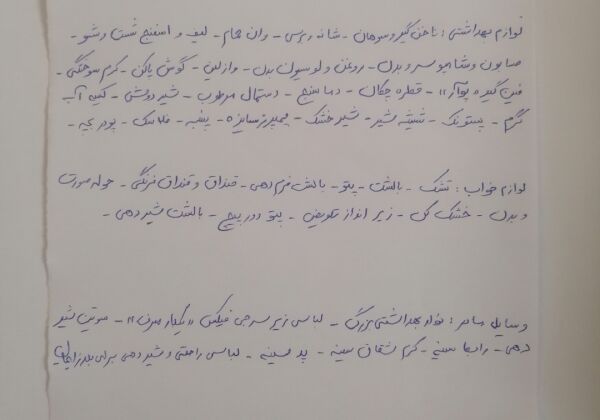 لوازم بهداشتی : ناخن گیر و سوهان - شانه و برس - وان حمام - لیف و اسفنج شست و شو -
صابون و شامپو سر و بدن - روغن و لوسیون بدن - وازلین - گوش پاکن - کرم سوختگی -
فین گیر « پوآر » - قطره چکان - دماسنج - دستمال مرطوب - شیر دوش - کیسه آب
گرم - پستونک - شیشه شیر - شیر خشک - پمپرز سایز ه - پنبه - فلاسک - پودر بچه -
لوازم خواب : تشک - بالشت - پتو - بالش فرم دهی - قنداق و قنداق فرنگی - حوله صورت
و بدن - خشک کن - زیر انداز تعویض - پتو دور پیچ - بالشت شیر دهی -
وسایل مادر : نوار بهداشتی بزرگ - لباس زیر سرجی فیکس « یکبار مصرف » - سوتین شیر
دهی - رابط سینه - کرم شقاق سینه - پد سینه - لباس راحتی و شیر دهی برای بعد زایمان